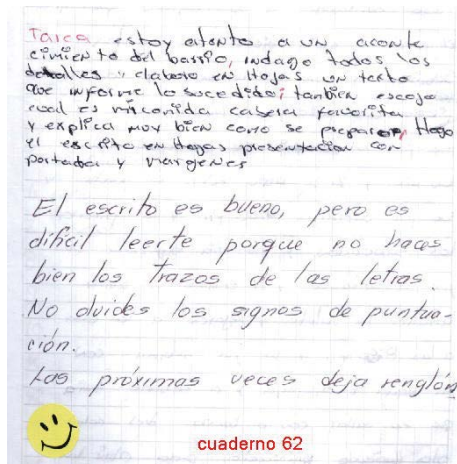 Tarea estoy atento a un aconte
cimiento del barrio, indago todos los
detalles y elaboro en Hojas un texto
que informe lo sucedido; tanbien escojo
cual es mi comida casera favorita
y explica muy bien como se prepara, Hago
el escrito en Hojas presentacion con
portada y margenes
El escrito es bueno, pero es
difícil leerte porque no haces
bien los trazos de las letras.
No olvides los signos de puntua-
ción.
Las próximas veces deja renglón
cuaderno 62